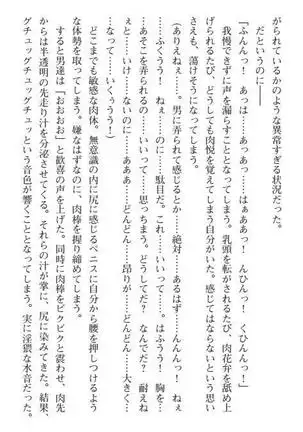 がられているかのような異常すぎる状況だった。
だというのに――
「ふんんっ！　あっ……はぁ……あっあっ……はぁああっ！　んひんっ！　くひんんっ！」
我慢できずに声を漏らすこととなってしまう。乳頭を転がされるたび、肉花弁を舐め上
げられるたび、どうしても肉悦を覚えてしまう自分がいた。感じてはならないという思い
さえも、蕩けそうになってしまう。
（ありえねぇ……。男に弄られて感じるとか……絶対……あるはず……んんんっ！　ねぇ
……ふくうう！　ねぇ……のに……駄目だ。これ……いいって……。はふうう！　胸を……
あそこを弄られるの……いいって……思っちまう。どうしてだ？　なんでだ？　耐えねぇ
と……いけ……ないのに……ああぁ……どんどん……昂りが……どんどん……大きく……
なって……いくううう！）
どこまでも敏感な肉体。無意識の内に尻に感じるペニスに自分から腰を押しつけるよう
な体勢を取ってしまう。嫌なはずなのに、肉棒を握り締めてしまう。
すると男達は「おおおお」と歓喜の声を上げた。同時に肉棒をビクビクと震わせ、肉先
からは半透明の先走り汁を分泌させてくる。それらの汁が掌に、尻に染みてきた。結果、
グチュッグチュッグチュッという音色が響くこととなってしまう。実に淫猥な水音だった。